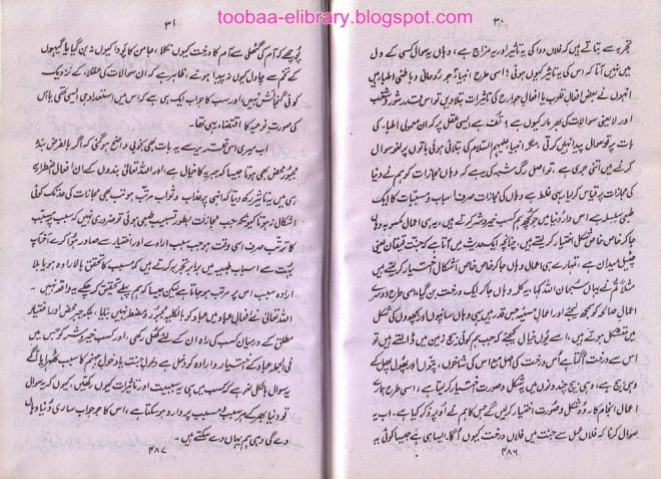 toobaa-elibrary.blogspot.com
۳۰
تجربہ سے بتاتے ہیں کہ فلاں دوا کی یہ تاثیر اور یہ مزاج ہے، وہاں یہ سوال کسی کے دل
میں نہیں آتا کہ اس کی یہ تاثیر کیوں ہوئی؟ اسی طرح انبیاء جو روحانی و باطنی اطباء ہیں
انہوں نے بعض افعال قلوب یا افعال جوارح کی تاثیرات بتلادیں تو اس قدر شور و شغب
اور لایعنی سوالات کی بھرمار کیوں ہے؛ تف ہے ایسی عقل پر کہ ان معمولی اطباء کی
بات پر تو سوال پیدا نہیں کرتی، مگر انبیاء علیہم السلام کی بتلائی ہوئی باتوں پر لغو سوال
کرنے میں اتنی جری ہے، تو اصل رگ شبہ کی یہ ہے کہ وہاں کے مجازات کو ہم نے دنیا
کی مجازات پر قیاس کر لیا یہی غلط ہے وہاں کی مجازات صرف اسباب و مسببات کا ایک
طبعی سلسلہ ہے، اس دار دنیا میں جو کچھ ہم کسب خیر و شر کرتے ہیں، یہ ہی اعمال مکسوبہ وہاں
جا کر خاص خاص شکل اختیار کر لیتے ہیں، چنانچہ ایک حدیث میں آتا ہے کہ جنت قیعان یعنی
چٹیل میدان ہے، تمہارے ہی اعمال وہاں جا کر خاص خاص اشکال اختیار کر لیتے ہیں
مثلاً تم نے یہاں سبحان اللہ کہا، یہ کلمہ وہاں جا کر ایک درخت بن گیا، اسی طرح دوسرے
اعمال صالحہ کو سمجھ لیجئے اور اعمال سیئہ جس قدر ہیں یہی وہاں سانپوں اور بچھوؤں کی شکل
میں متشکل ہوتے ہیں، اسے یوں خیال کیجئے کہ جب ہم کوئی بیج زمین میں ڈالتے ہیں تو
اس سے درخت اگتا ہے اُس درخت کی اصل مع اس کی شاخوں، پتوں اور پھول پھل کے
وہی بیج ہے، وہی بیج چند دنوں میں یہ شکل و صورت اختیار کر لیتا ہے، اسی طرح ہمارے
اعمال انجام کار وہ شکل و صورت اختیار کر لیں گے جس کا ہم نے اوپر ذکر کیا ہے، اب یہ
سوال کرنا کہ فلاں عمل سے جنت میں فلاں درخت کیوں اُگا، ایسا ہی ہے جیسا کوئی یہ
۴۸۶
۳۱
پوچھے کہ آم کی گٹھلی سے آم کا درخت کیوں نکلا، جامن کا پودا کیوں نہ بن گیا یا گیہوں
کے تخم سے چاول کیوں نہ پیدا ہوئے، ظاہر ہے کہ ان سوالات کی عقلاء کے نزدیک
کوئی گنجائش نہیں اور سب کا جواب ایک ہی ہے کہ اس میں استعداد ہی ایسی تھی یا اس
کی صورت نوعیہ کا اقتضاء یہی تھا۔
اب میری اس تقریر سے یہ بات بھی بخوبی واضح ہو گئی کہ اگر بالفرض بندہ
مجبور محض بھی ہوتا جیسا کہ جبریہ کا خیال ہے، اور اللہ تعالیٰ بندوں کے ان افعال اضطراریہ
ہی میں یہ تاثیر رکھ دیتا کہ انہی پر عذاب و ثواب مرتب ہو تب بھی مجازات کی حد تک کوئی
اشکال نہ ہوتا کیونکہ جب مجازات بطور تسبیب طبعی ہوئی تو ضروری نہیں کہ سبب پر مسبب
کا ترتب صرف اسی وقت ہو جب سبب ارادے اور اختیار سے صادر ہوا کرے، آخر آپ
بہت سے اسباب طبعیہ میں برابر تجربہ کرتے ہیں کہ سبب کا تحقق بالارادہ ہو یا بلا
ارادہ مسبب اس پر مرتب ہو جاتا ہے لیکن جیسا کہ ہم پہلے تحقیق کر چکے یہ واقعہ نہیں۔
اللہ تعالیٰ نے افعال عباد میں عباد کو بالکلیہ مجبور و مضطر نہیں بنایا، بلکہ جبر محض اور اختیار
مطلق کے درمیان کسب کی راہ ان کے لئے کھلی رکھی، اور کسب خیر و شر کو جس میں
فی الجملہ عباد کے اختیار و ارادہ کو دخل ہے دخول جنت یا دخول جہنم کا سبب ٹھہرایا، آگے
یہ سوال بالکل لغو ہے کہ سبب میں ہی یہ سببیت اور تاثیرات کیوں رکھیں، کیوں کہ یہ سوال
تو دنیا بھر کے ہر سبب و مسبب پر وارد ہو سکتا ہے، اس کا جو جواب ساری دنیا وہاں
دے گی وہی ہم یہاں دے سکتے ہیں۔
۴۸۷